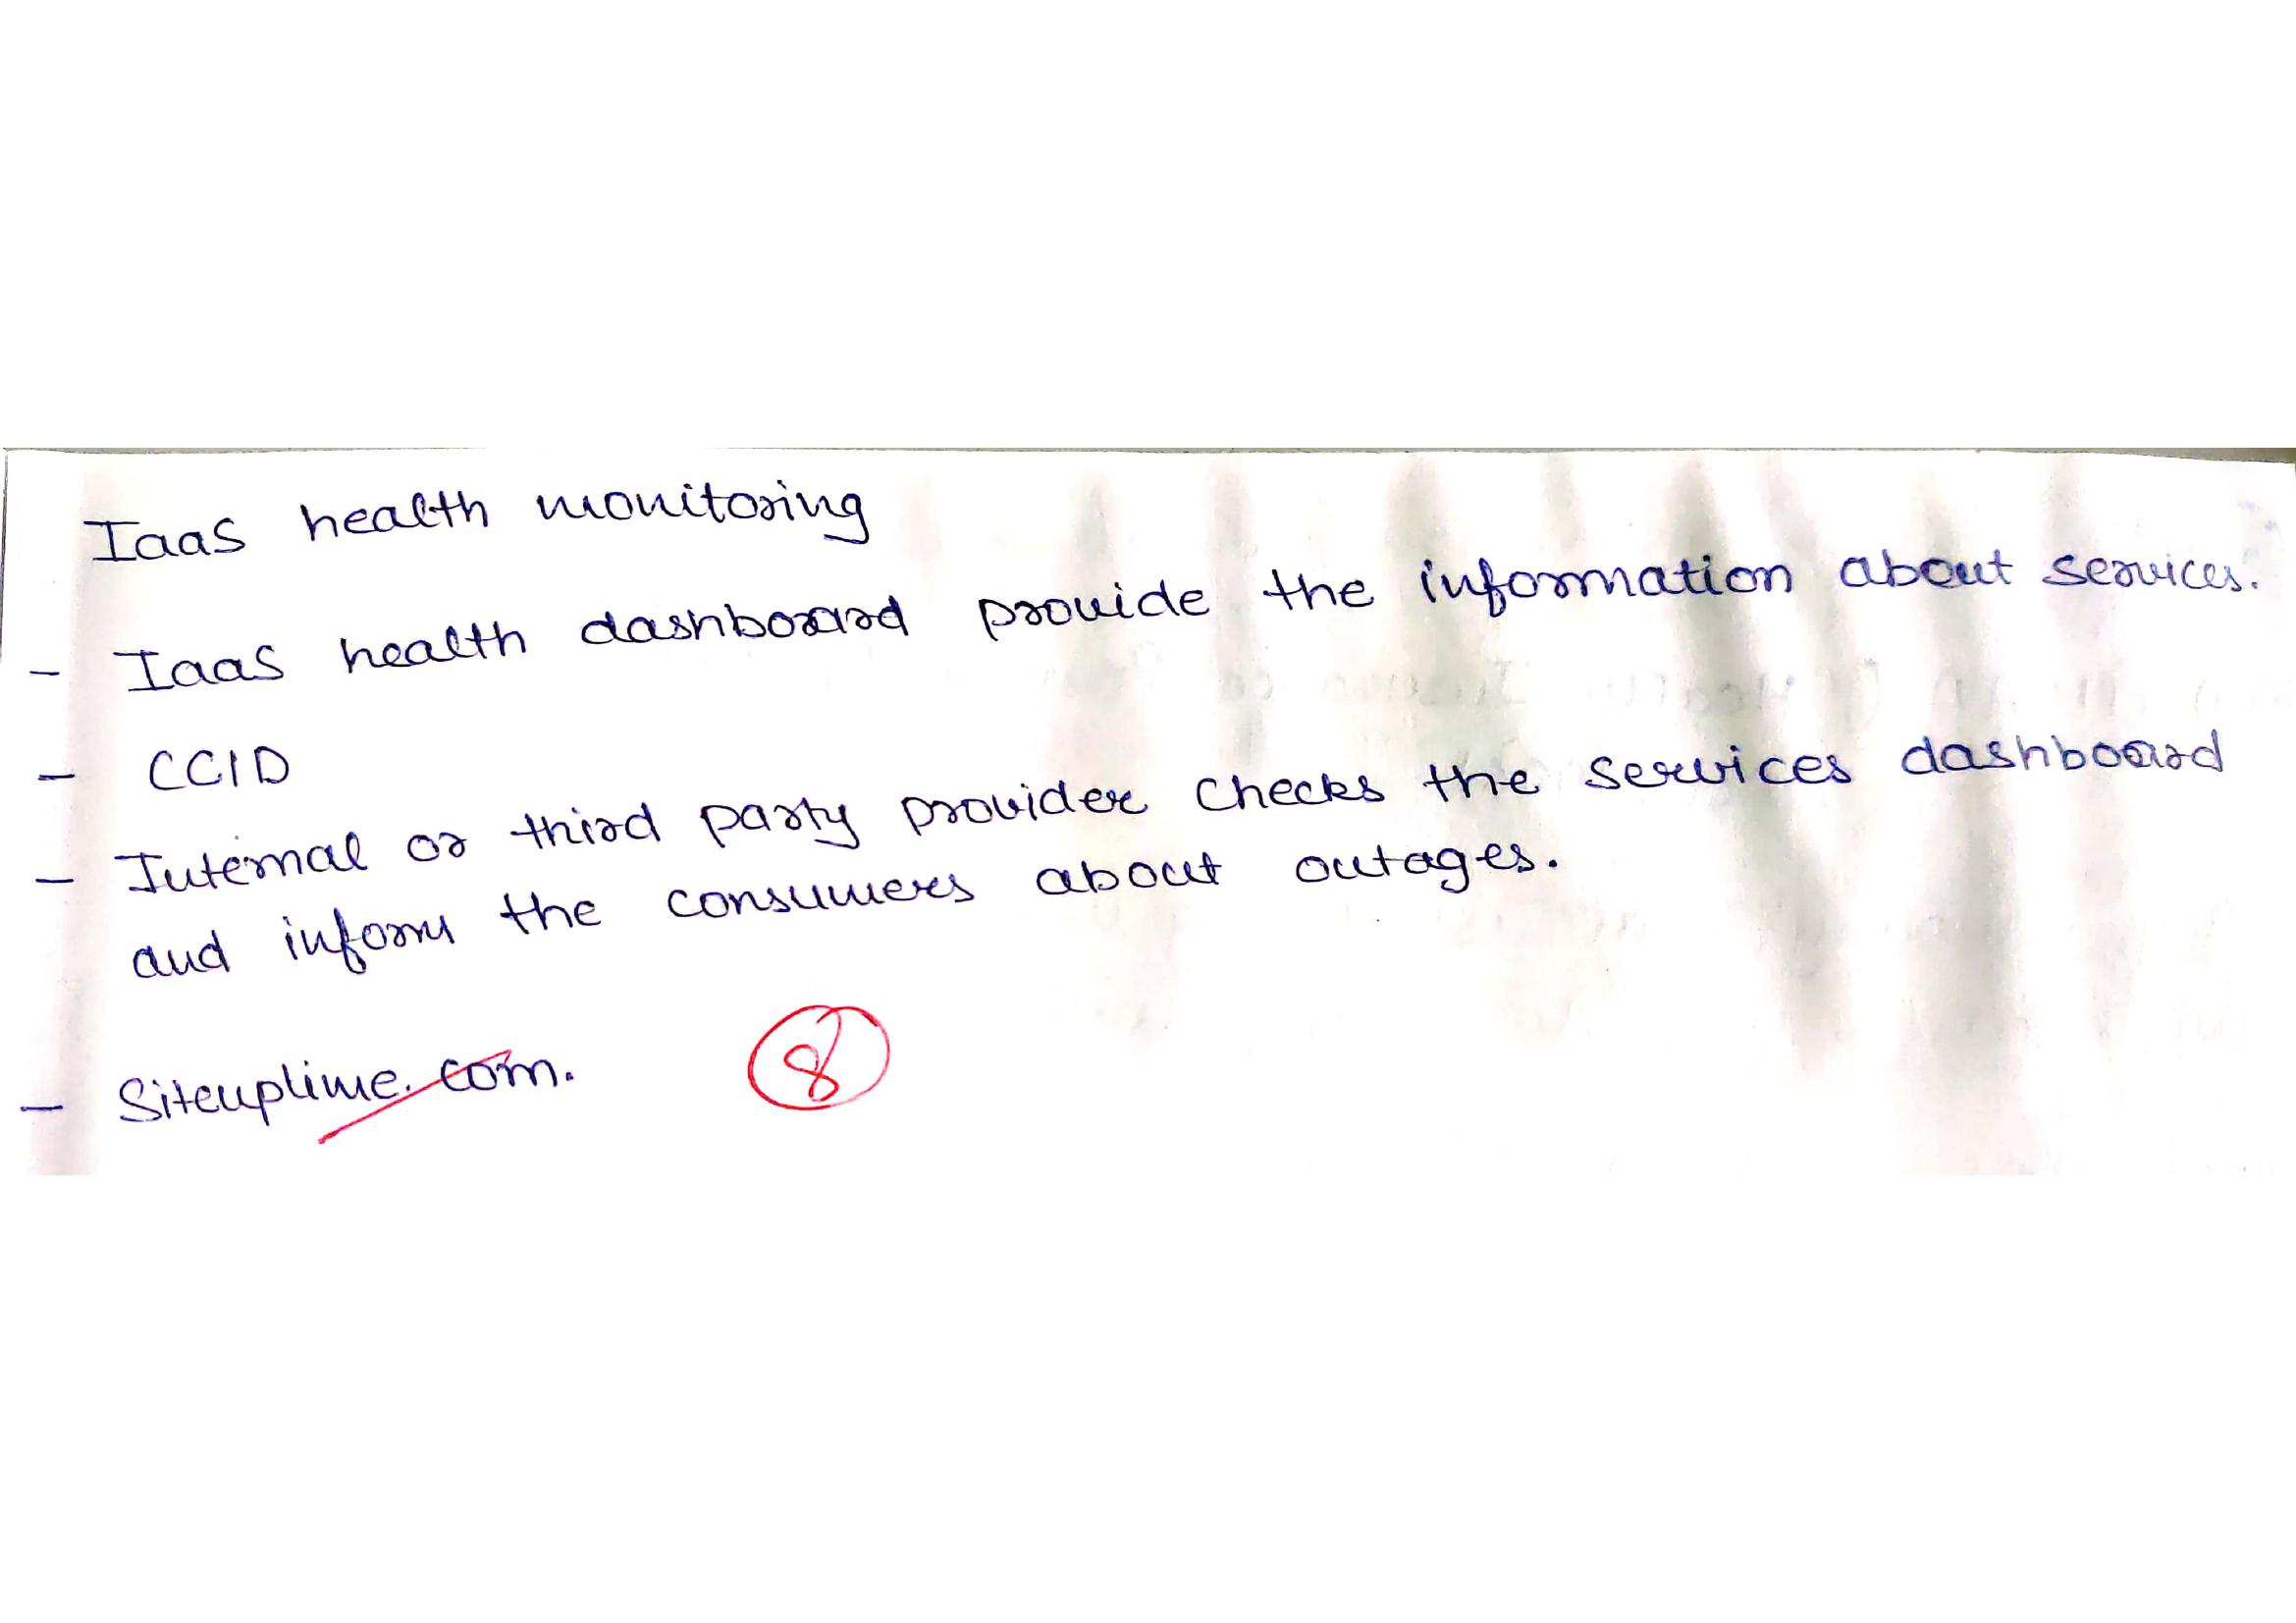 IaaS health monitoring
- IaaS health dashboard provide the information about services.
- CCID
- Internal or third party provider checks the services dashboard
and inform the consumers about outages.
- Siteuptime.com.
8